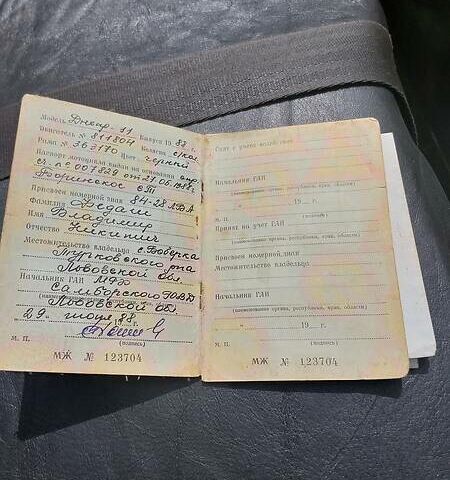 Модель Днепр-11
Двигатель № 811804 Выпуск 19 88 г.
Рама № 363170 Цвет черный
Паспорт мотоцикла выдан на основании
007829 от 24.06.1988г
СТ
Присвоен номерной знак 84-28 ЛВА
Фамилия
Имя Владимир
Отчество Никитич
Местожительство владельца с. Боберка
Турковского р-на
Львовской обл.
Начальник ГАИ МРО
Самборского ГОВД
Львовской обл.
29. июля 88
19 г.
М. П. (подпись)
МЖ № 123704
Снят с учета
Начальник ГАИ
(наименование органа, республики, края, области)
" " 19 г.
М. П. (подпись)
Принят на учет ГАИ
(наименование органа, республики, края, области)
Присвоен номерной знак
Местожительство владельца
Начальник ГАИ
(наименование органа, республики, края, области)
" " 19 г.
М. П. (подпись)
МЖ № 123704